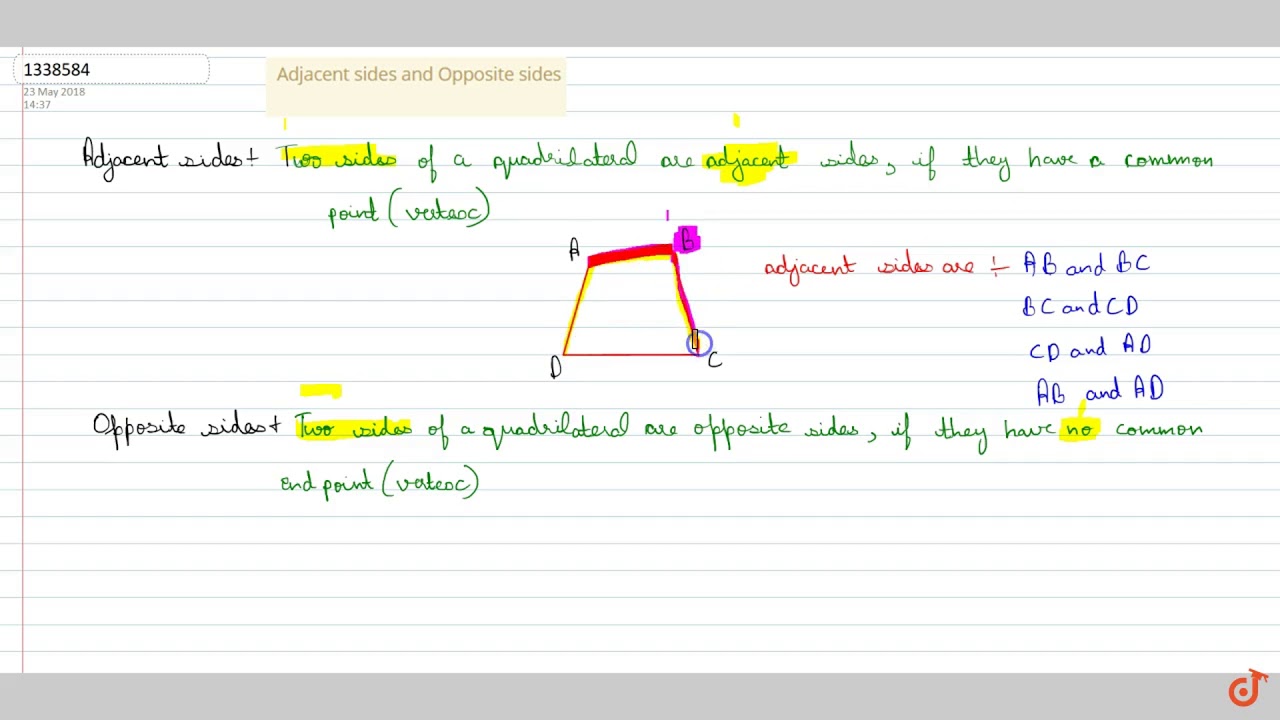 1338584
23 May 2018
14:37
Adjacent sides and Opposite sides
Adjacent sides÷ Two sides of a quadrilateral are adjacent sides, if they have a common
point (vertex)
A
B
D
C
adjacent sides are ÷ AB and BC
BC and CD
CD and AD
AB and AD
Opposite sides÷ Two sides of a quadrilateral are opposite sides, if they have no common
end point (vertex)